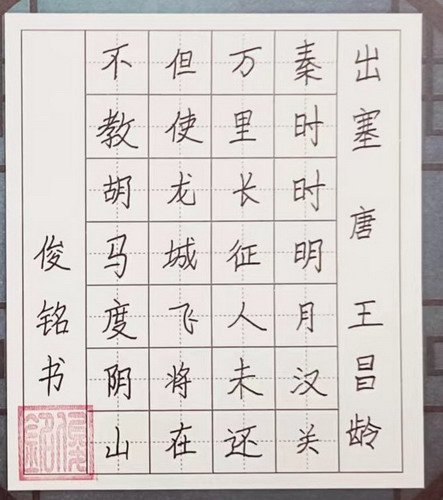 出塞 唐 王昌龄
秦时时明月汉关
万里长征人未还
但使龙城飞将在
不教胡马度阴山
俊铭书